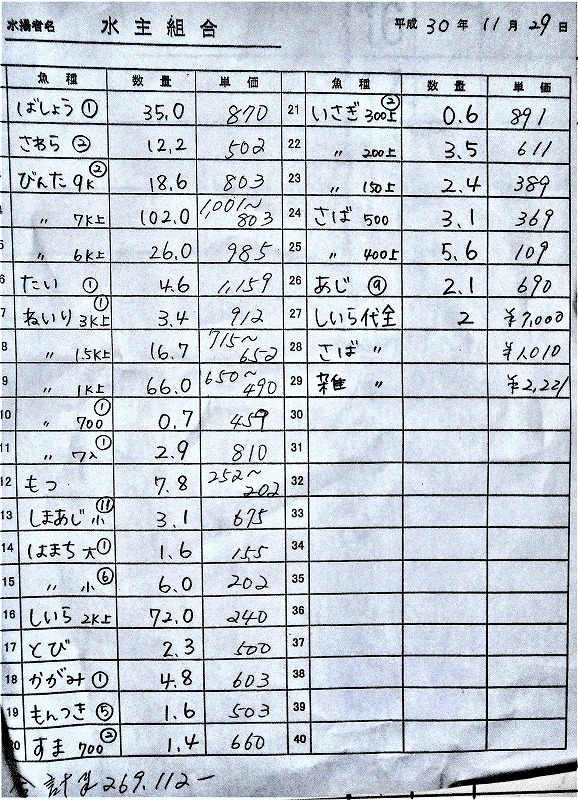 水揚者名 水主組合 平成30年11月29日
魚種 数量 単価 魚種 数量 単価
ばしょう ① 35.0 870
さわら ② 12.2 502
びんた 9K ② 18.6 803
〃 7K上 102.0 1,001〜803
〃 6K上 26.0 985
6 たい ① 4.6 1,159
7 ねいり 3K上 ① 3.4 912
8 〃 1.5K上 16.7 715〜652
9 〃 1K上 66.0 650〜490
10 〃 700 ① 0.7 459
11 〃 7入 ① 2.9 810
12 もつ 7.8 252〜202
13 しまあじ 小 ⑪ 3.1 675
14 はまち 大 ① 1.6 155
15 〃 小 ⑥ 6.0 202
16 しいら 2K上 72.0 240
17 とび 2.3 500
18 かがみ ① 4.8 603
19 もんつき ⑤ 1.6 503
20 すま 700 ② 1.4 660
21 いさぎ 300上 ② 0.6 891
22 〃 200上 3.5 611
23 〃 150上 2.4 389
24 さば 500 3.1 369
25 〃 400上 5.6 109
26 あじ ⑨ 2.1 690
27 しいら代金 2 ¥7,000
28 さば 〃 ¥1,010
29 雑 〃 ¥2,221
30
31
32
33
34
35
36
37
38
39
40
合計¥269,112-